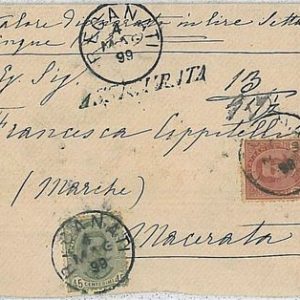 Valore dichiarato in lire Sette
cinque
RECANATI
4
MAG
99
ASSICURATA
13
Sig.
Francesca Cippitelli
(Marche)
Macerata
RECANATI
4
MAG
99
45 CENTESIMI 45